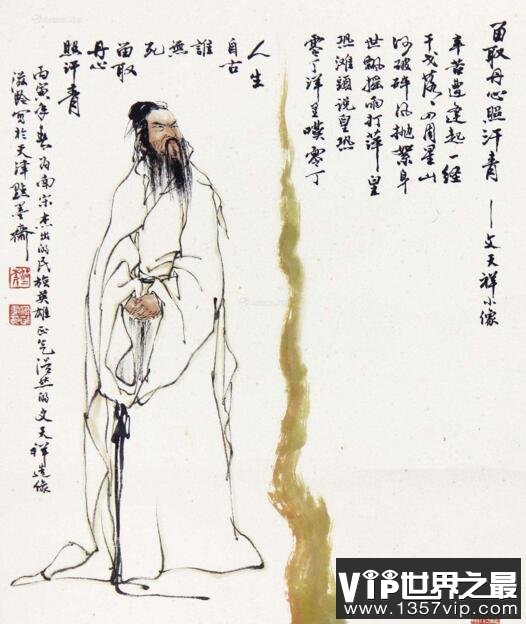 留取丹心照汗青——文天祥小像
辛苦遭逢起一经
干戈落々四周星山
河破碎风抛絮身
世飘摇雨打萍皇
恐滩頭说皇恐
零丁洋里嘆零丁
人生
自古
誰
無
死
留取
丹心
照汗青
丙寅年春为南宋杰出的民族英雄正气浩然的文天祥造像
滋龄写於天津點墨齋
VIP世界之最
www.1357vip.com